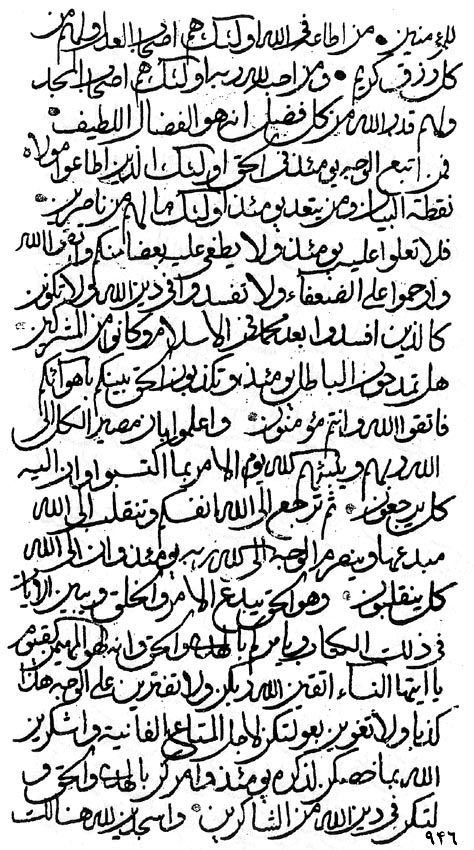 للمؤمنين ۞ من اطاعه في الله اولئك هم اصحاب العدل ولهم من
كل رزق كريم ۞ ومن احب لله ربه اولئك هم اصحاب المجد
ولهم قدر الله من كل فضل انه هو الفضال اللطيف ۞
فمن اتبع الوجه يومئذ في الحق اولئك الذين اطاعوا مولاه
نقطة البيان ومن يتعد يومئذ اولئك ما لهم من ناصرين ۞
فلا تعلوا عليه يومئذ ولا يطغى عليه بعضا منكم واتقوا الله
وارحموا على الضعفاء ولا تفسدوا في دين الله ولا تكونن
كالذين افسدوا بعد محمد في الاسلام وكانوا من المشركين
هل تمدحون الباطل يومئذ وتكذبون الحق بينكم باهوائكم
فاتقوا الله وانتم مؤمنون ۞ واعلموا بان مصير الكل الى
الله ربهم وينبئهم الله يوم الامر بما اكتسبوا وان اليه
كل يرجعون ۞ ثم ترجع الى الله انفسكم وتنقلب الى الله
مبدعها وينصرم الوجه الى الله ربه يومئذ وان الى الله
كل ينقلبون ۞ وهو الحق يبدع الامر والخلق ويبين الايات
في ذلك الكتاب ويامركم بالهدى والحق وانه لهو المهيمن القيوم
يا ايتها النساء اتقين الله ربكن ولا تفترين على الوجه هذا
كذبا ولا تغوين بعولتكن لاجل المتاع الفانية واشكرين
الله بما خصكن لذكره يومئذ وامركن بالهدى والحق و
لتكن في دين الله من الشاكرين ۞ واسجدين لله هنالك
٩٤٦